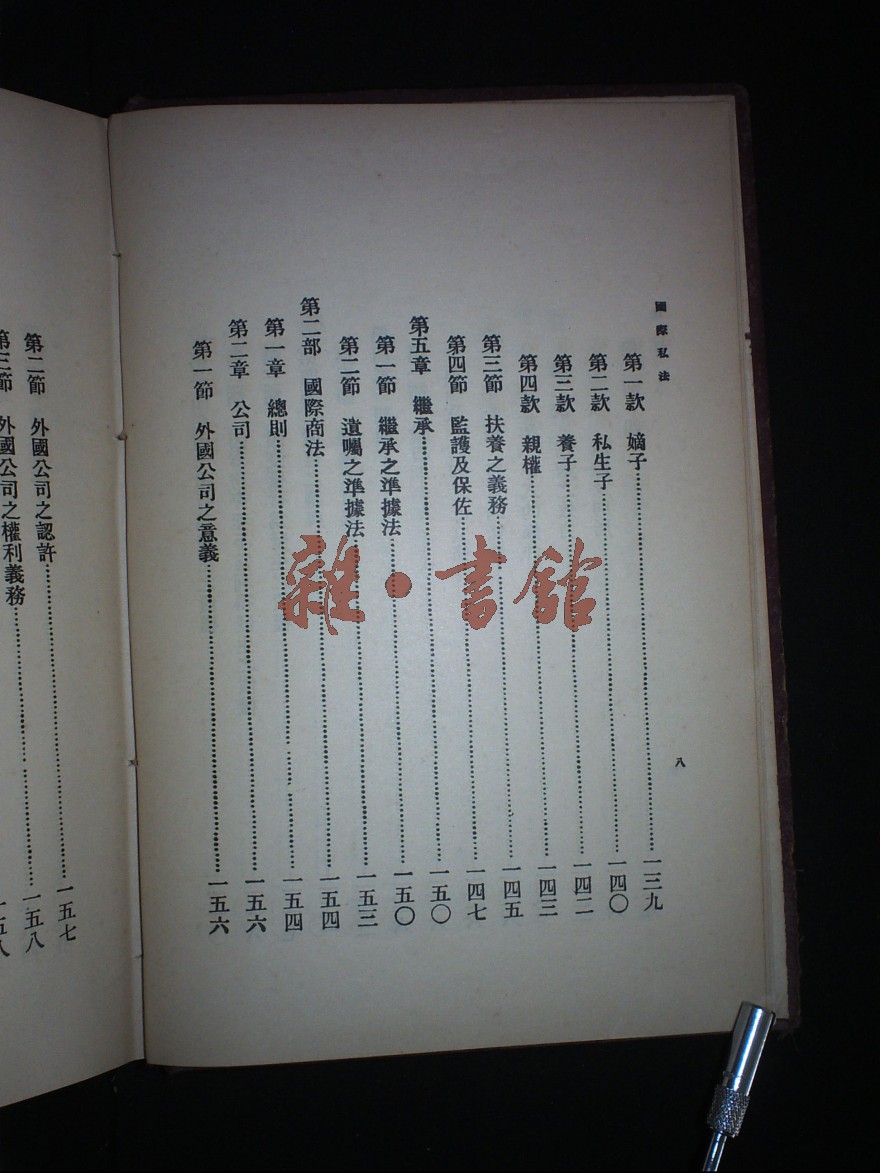 國際私法
第一款 嫡子 一三九
第二款 私生子 一四〇
第三款 養子 一四二
第四款 親權 一四三
第三節 扶養之義務 一四五
第四節 監護及保佐 一四七
第五章 繼承 一五〇
第一節 繼承之準據法 一五〇
第二節 遺囑之準據法 一五三
第二部 國際商法 一五四
第一章 總則 一五四
第二章 公司 一五六
第一節 外國公司之意義 一五六
八
第二節 外國公司之認許 一五七
第三節 外國公司之權利義務 一五八
一五八
雜·書館